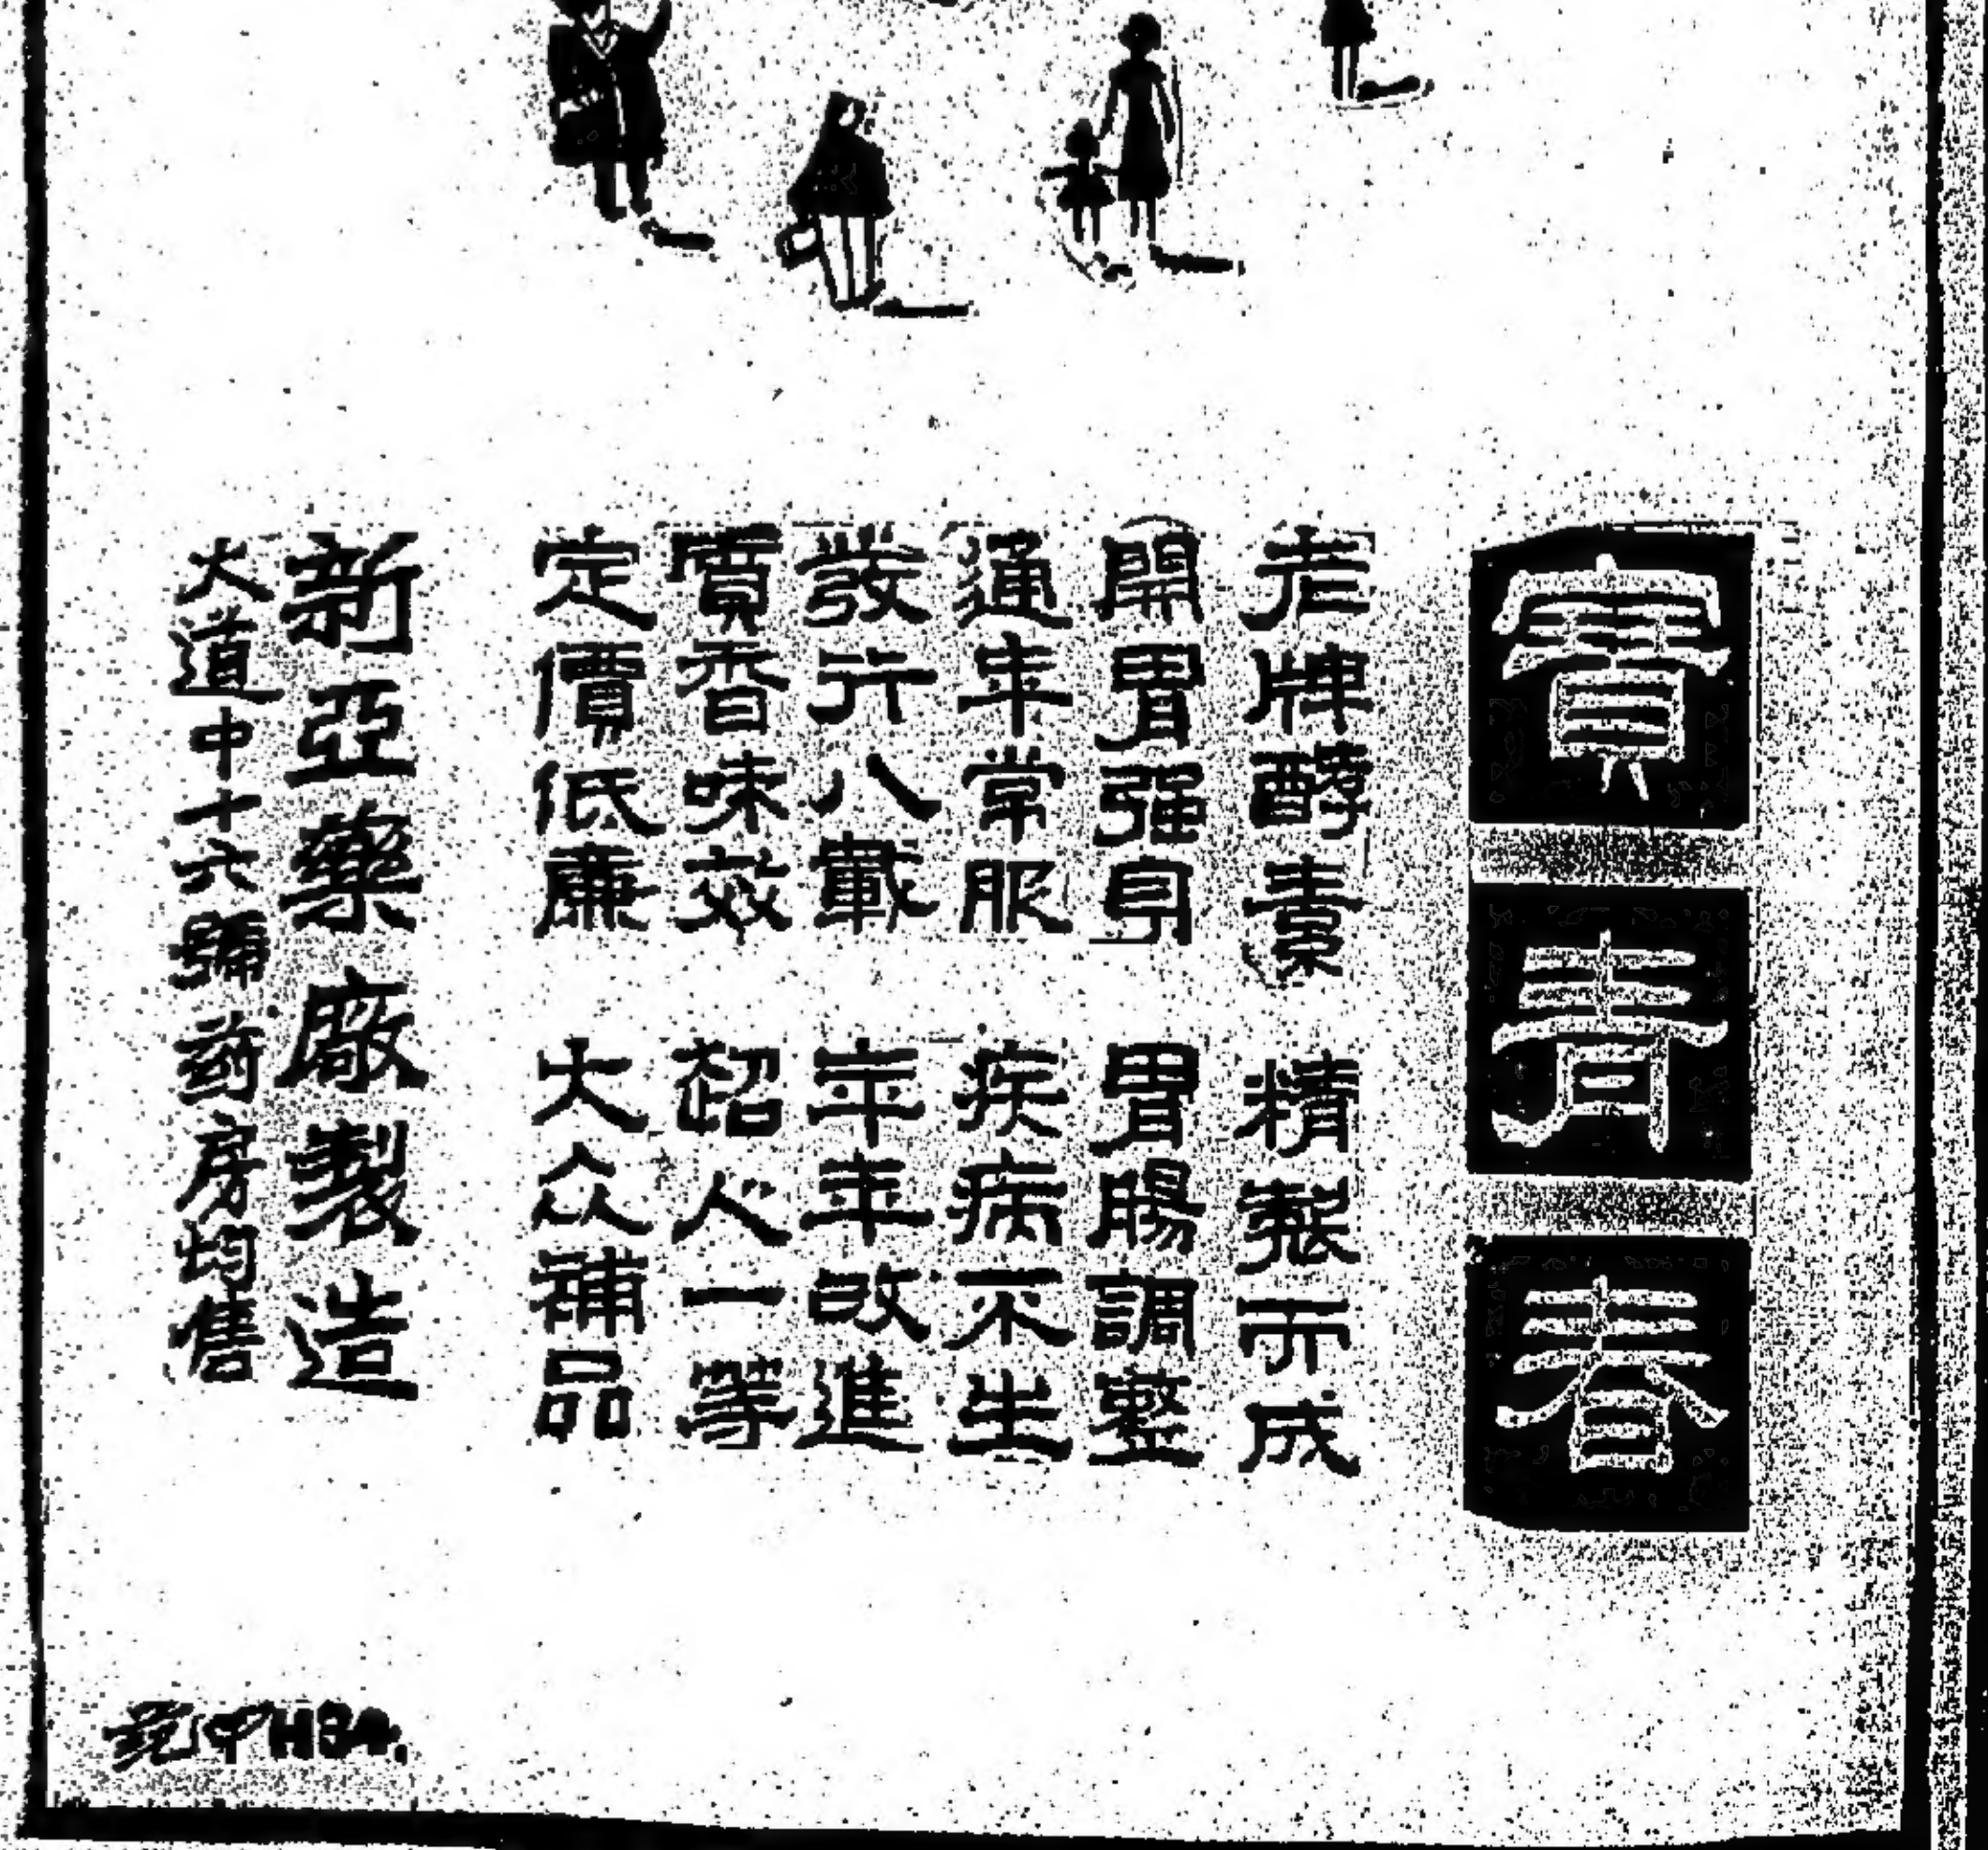 寶青春
老牌酵素 精製而成
開胃强身 胃腸調整
通年常服 疾病不生
發行八載 年年改進
質香味效 超人一等
定價低廉 大众補品
新亞藥廠製造
大道中十六號葯房均售